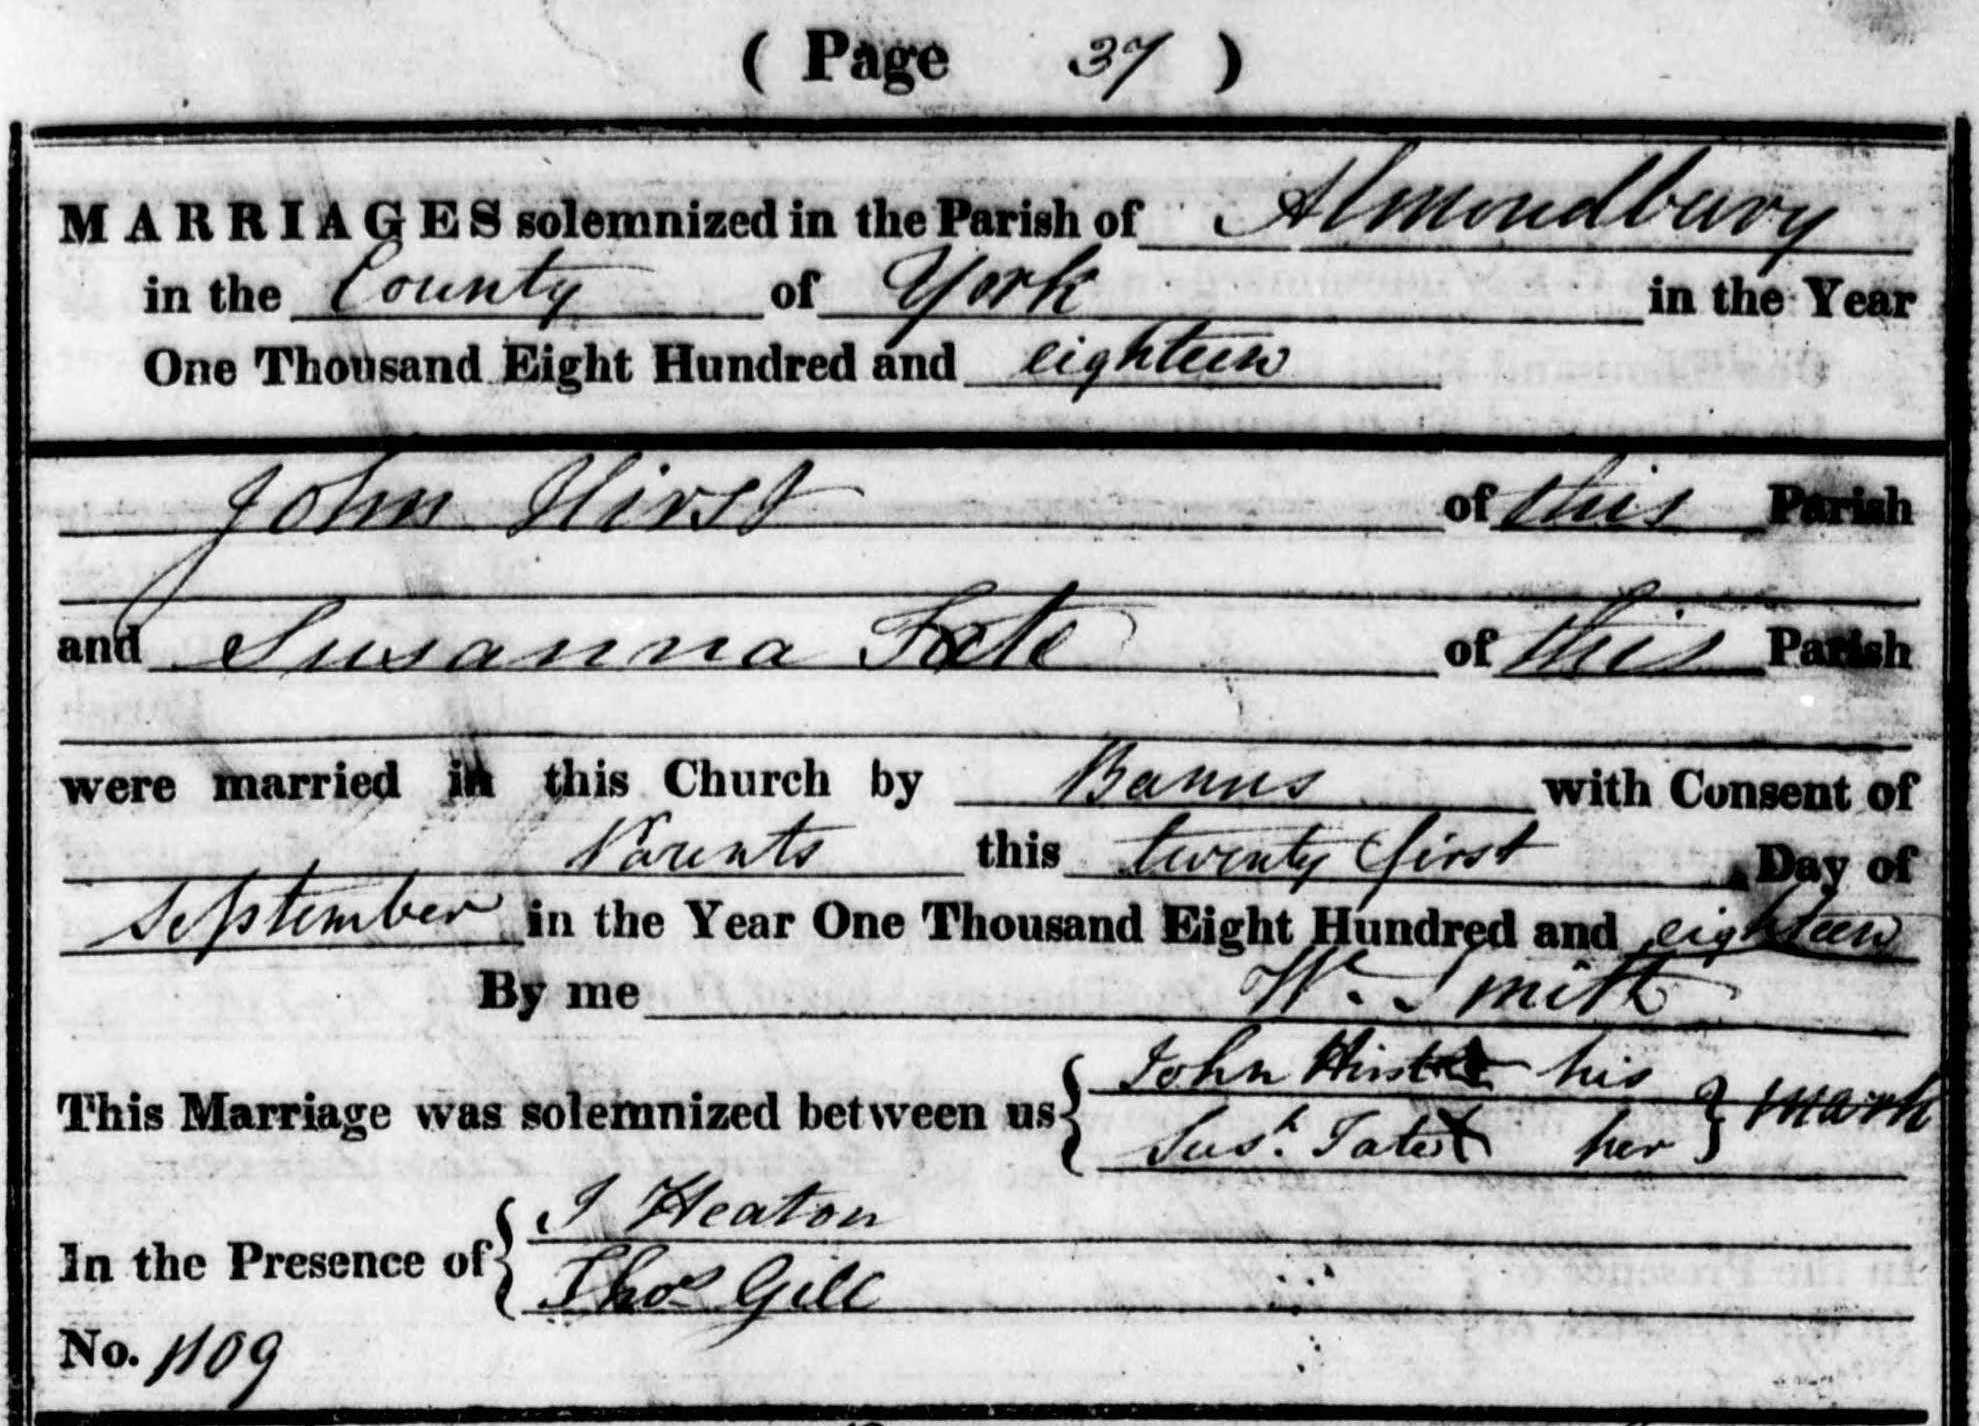 ( Page 37 )
MARRIAGES solemnized in the Parish of Almondbury
in the County of York in the Year
One Thousand Eight Hundred and eighteen
John Hirst of this Parish
and Susanna Tate of this Parish
were married in this Church by Banns with Consent of
Parents this twenty first Day of
September in the Year One Thousand Eight Hundred and eighteen
By me W. Smith
This Marriage was solemnized between us { John Hirst X his } mark
Sush. Tate X her
In the Presence of { J Heaton
Thos Gill
No. 1109